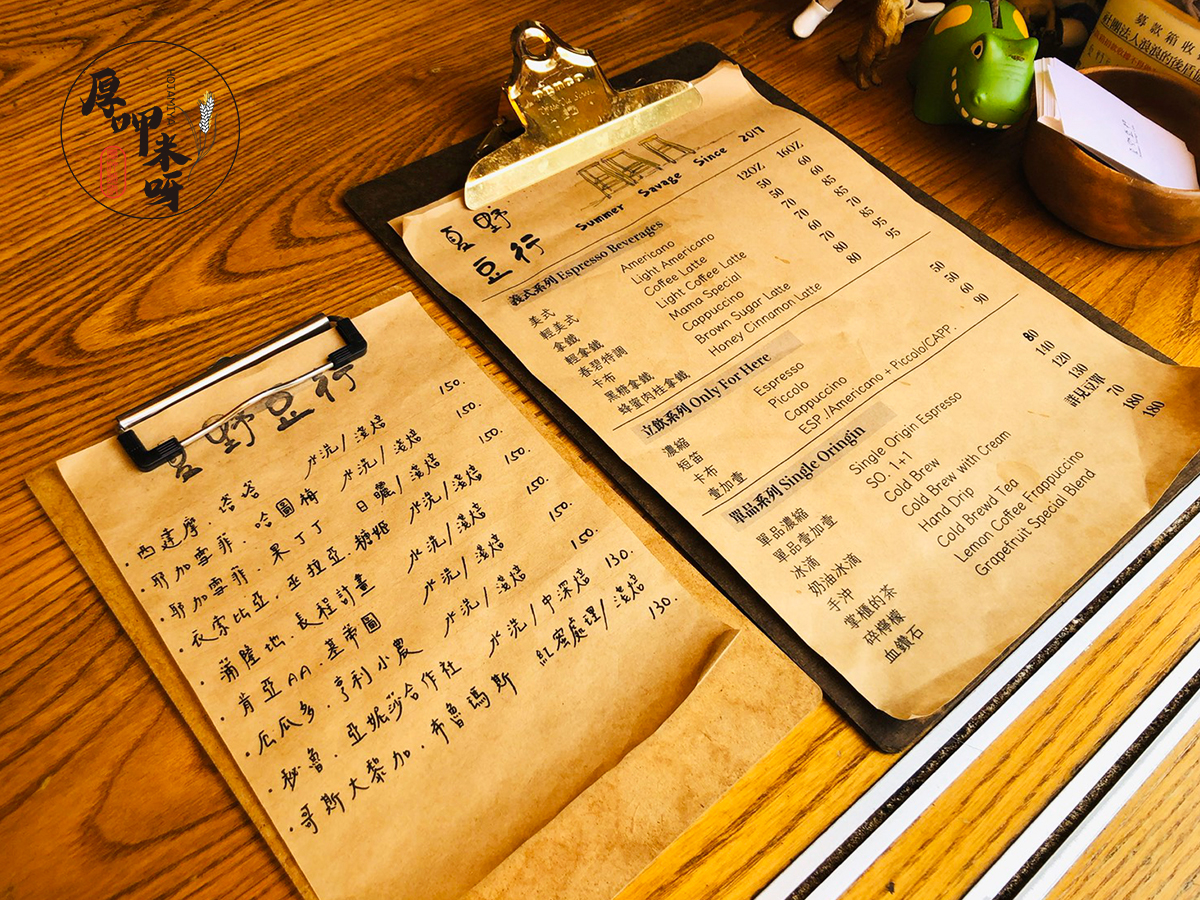 厚呷米呀
HOJIAMIYA
募款箱收
社團法人浪浪的後盾
夏野
豆行
Summer Savage Since 2017
義式系列 Espresso Beverages 12OZ 16OZ
美式 Americano 50 60
輕美式 Light Americano 50 60
拿鐵 Coffee Latte 70 85
輕拿鐵 Light Coffee Latte 70 85
春碧特調 Mama Special 60 70
卡布 Cappuccino 70 85
黑糖拿鐵 Brown Sugar Latte 80 95
蜂蜜肉桂拿鐵 Honey Cinnamon Latte 80 95
立飲系列 Only For Here
濃縮 Espresso 50
短笛 Piccolo 50
卡布 Cappuccino 60
壹加壹 ESP /Americano + Piccolo/CAPP. 90
單品系列 Single Oringin
單品濃縮 Single Origin Espresso 80
單品壹加壹 SO. 1+1 110
冰滴 Cold Brew 120
奶油冰滴 Cold Brew with Cream 130
手沖 Hand Drip 詳見豆單
掌櫃的茶 Cold Brewd Tea 70
碎檸檬 Lemon Coffee Frappuccino 180
血鑽石 Grapefruit Special Blend 180
夏野豆行
·西達摩．塔谷 水洗/淺焙 150.
·耶加雪菲．哈圖梅 水洗/淺焙 150.
·耶加雪菲．果丁丁 日曬/淺焙 150.
·衣索比亞．亞拉亞．糖姬 水洗/淺焙 150.
·蒲隆地．長程計畫 水洗/淺焙 150.
·肯亞AA．基帝圖 水洗/淺焙 150.
·厄瓜多．亨利小農 水洗/淺焙 150.
·秘魯．亞妮莎合作社 水洗/中深焙 130.
·哥斯大黎加．布魯瑪斯 紅蜜處理/淺焙 130.